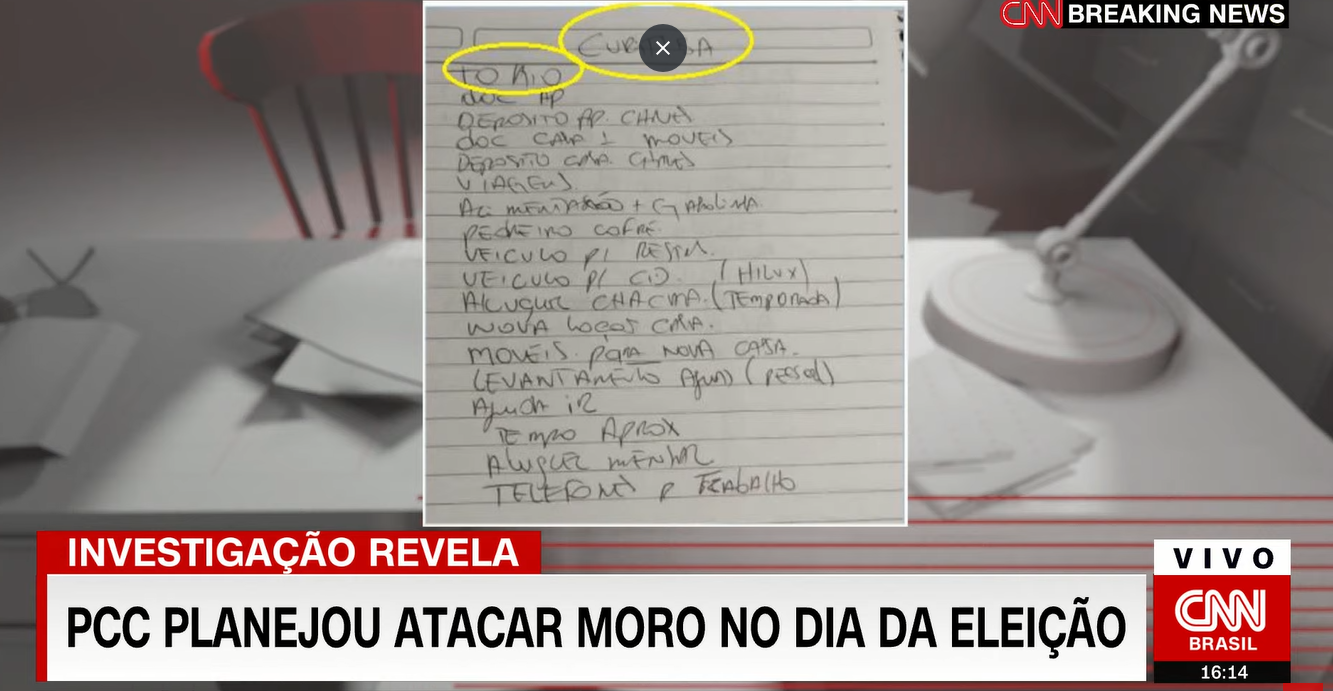 CNN BREAKING NEWS
TO RIO
DOC AP
DEPOSITO AP. CHAVES
DOC CASA 1 MOVEIS
DEPOSITO CASA. CHAVES
VIAGENS.
ALIMENTAÇÃO + GASOLINA.
PEDREIRO COFRE.
VEICULO P/
VEICULO P/ (HILUX)
ALUGUEL CHACARA. (TEMPORADA)
NOVA CASA.
MOVEIS. PARA NOVA CASA.
LEVANTAMENTO (PESSOAL)
AJUDA
TEMPO APROX
ALUGUEL MENSAL
TELEFONES P TRABALHO
INVESTIGAÇÃO REVELA
PCC PLANEJOU ATACAR MORO NO DIA DA ELEIÇÃO
VIVO
CNN
BRASIL
16:14